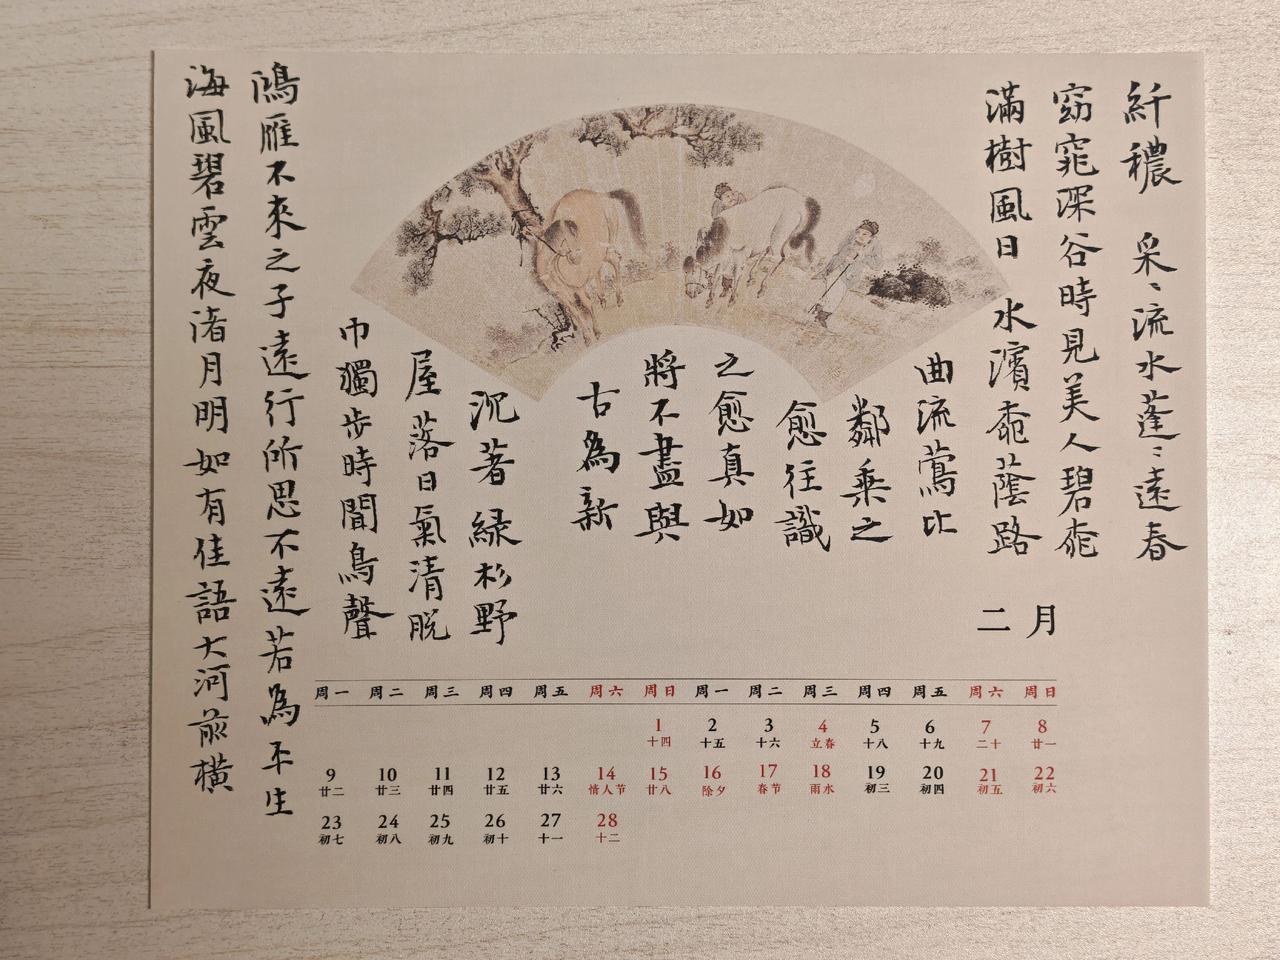 纖穠 采〻流水蓬〻遠春
窈窕深谷時見美人碧桃
滿樹風日 水濱桃蔭路
曲流鶯比
鄰乘之
愈往識
之愈真如
將不盡與
古為新
沉著 綠杉野
屋落日氣清脫
巾獨步時聞鳥聲
鴻雁不來之子遠行所思不遠若為平生
海風碧雲夜渚月明如有佳語大河前橫
二月
周一 周二 周三 周四 周五 周六 周日 周一 周二 周三 周四 周五 周六 周日
1 2 3 4 5 6 7 8
十四 十五 十六 立春 十八 十九 二十 廿一
9 10 11 12 13 14 15 16 17 18 19 20 21 22
廿二 廿三 廿四 廿五 廿六 情人节 廿八 除夕 春节 雨水 初三 初四 初五 初六
23 24 25 26 27 28
初七 初八 初九 初十 十一 十二